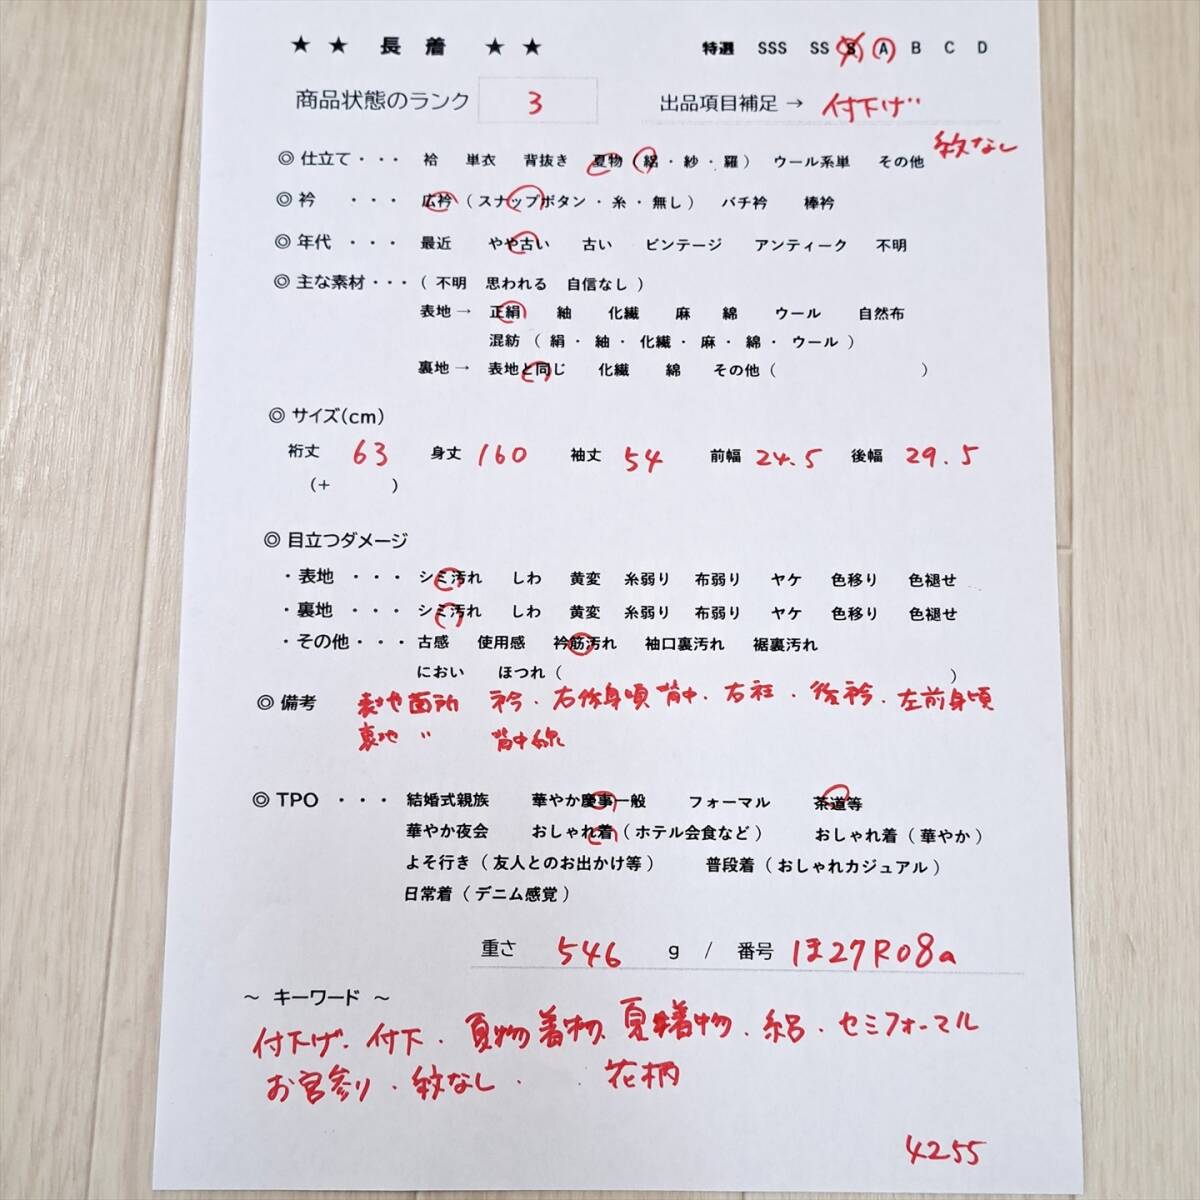 ★ ★ 長 着 ★ ★ 特選 SSS SS S A B C D
商品状態のランク 3 出品項目補足 → 付下げ
紋なし
◎ 仕立て・・・ 袷 単衣 背抜き 夏物（絽・紗・羅） ウール系単 その他
◎ 衿 ・・・ 広衿（スナップボタン・糸・無し） バチ衿 棒衿
◎ 年代 ・・・ 最近 やや古い 古い ビンテージ アンティーク 不明
◎ 主な素材・・・（ 不明 思われる 自信なし ）
表地 → 正絹 紬 化繊 麻 綿 ウール 自然布
混紡 （ 絹・紬・化繊・麻・綿・ウール ）
裏地 → 表地と同じ 化繊 綿 その他（ ）
◎ サイズ(cm)
裄丈 63 身丈 160 袖丈 54 前幅 24.5 後幅 29.5
（＋ ）
◎ 目立つダメージ
・表地 ・・・ シミ汚れ しわ 黄変 糸弱り 布弱り ヤケ 色移り 色褪せ
・裏地 ・・・ シミ汚れ しわ 黄変 糸弱り 布弱り ヤケ 色移り 色褪せ
・その他・・・ 古感 使用感 衿筋汚れ 袖口裏汚れ 裾裏汚れ
におい ほつれ（ ）
◎ 備考 表地箇所 衿・右後身頃背中・右衽・後衿・左前身頃
裏地 〃 背中線
◎ TPO ・・・ 結婚式親族 華やか慶事一般 フォーマル 茶道等
華やか夜会 おしゃれ着（ホテル会食など） おしゃれ着（華やか）
よそ行き（友人とのお出かけ等） 普段着（おしゃれカジュアル）
日常着（デニム感覚）
重さ 546 g / 番号 ほ27R08a
～ キーワード ～
付下げ・付下・夏物着物、夏着物・絽・セミフォーマル
お宮参り・紋なし・ ・花柄
4255